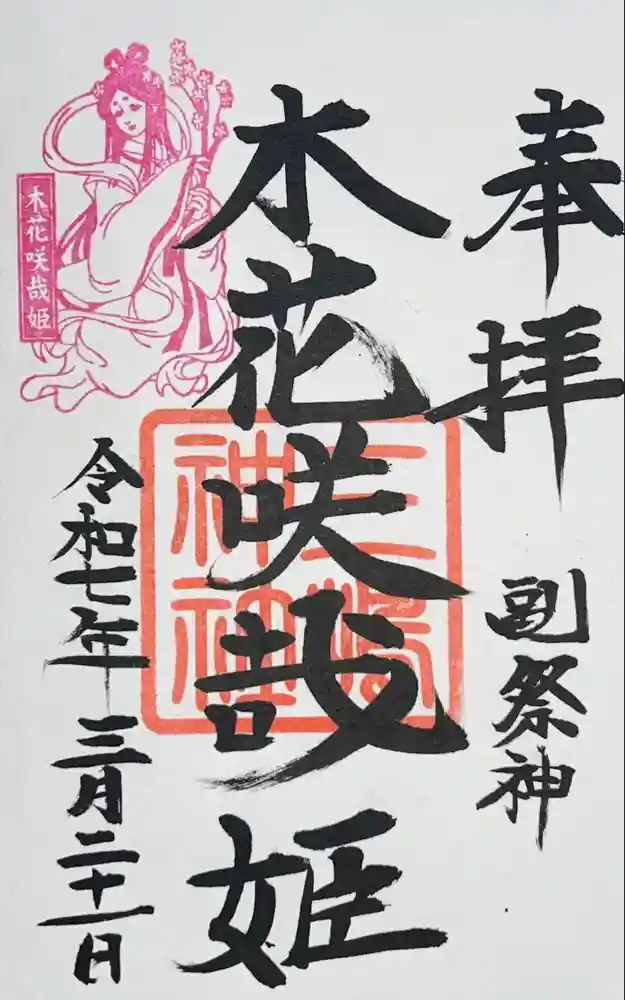 奉拝
副祭神
木花咲哉姫
三嶋
神社
木花咲哉姫
令和七年三月二十一日